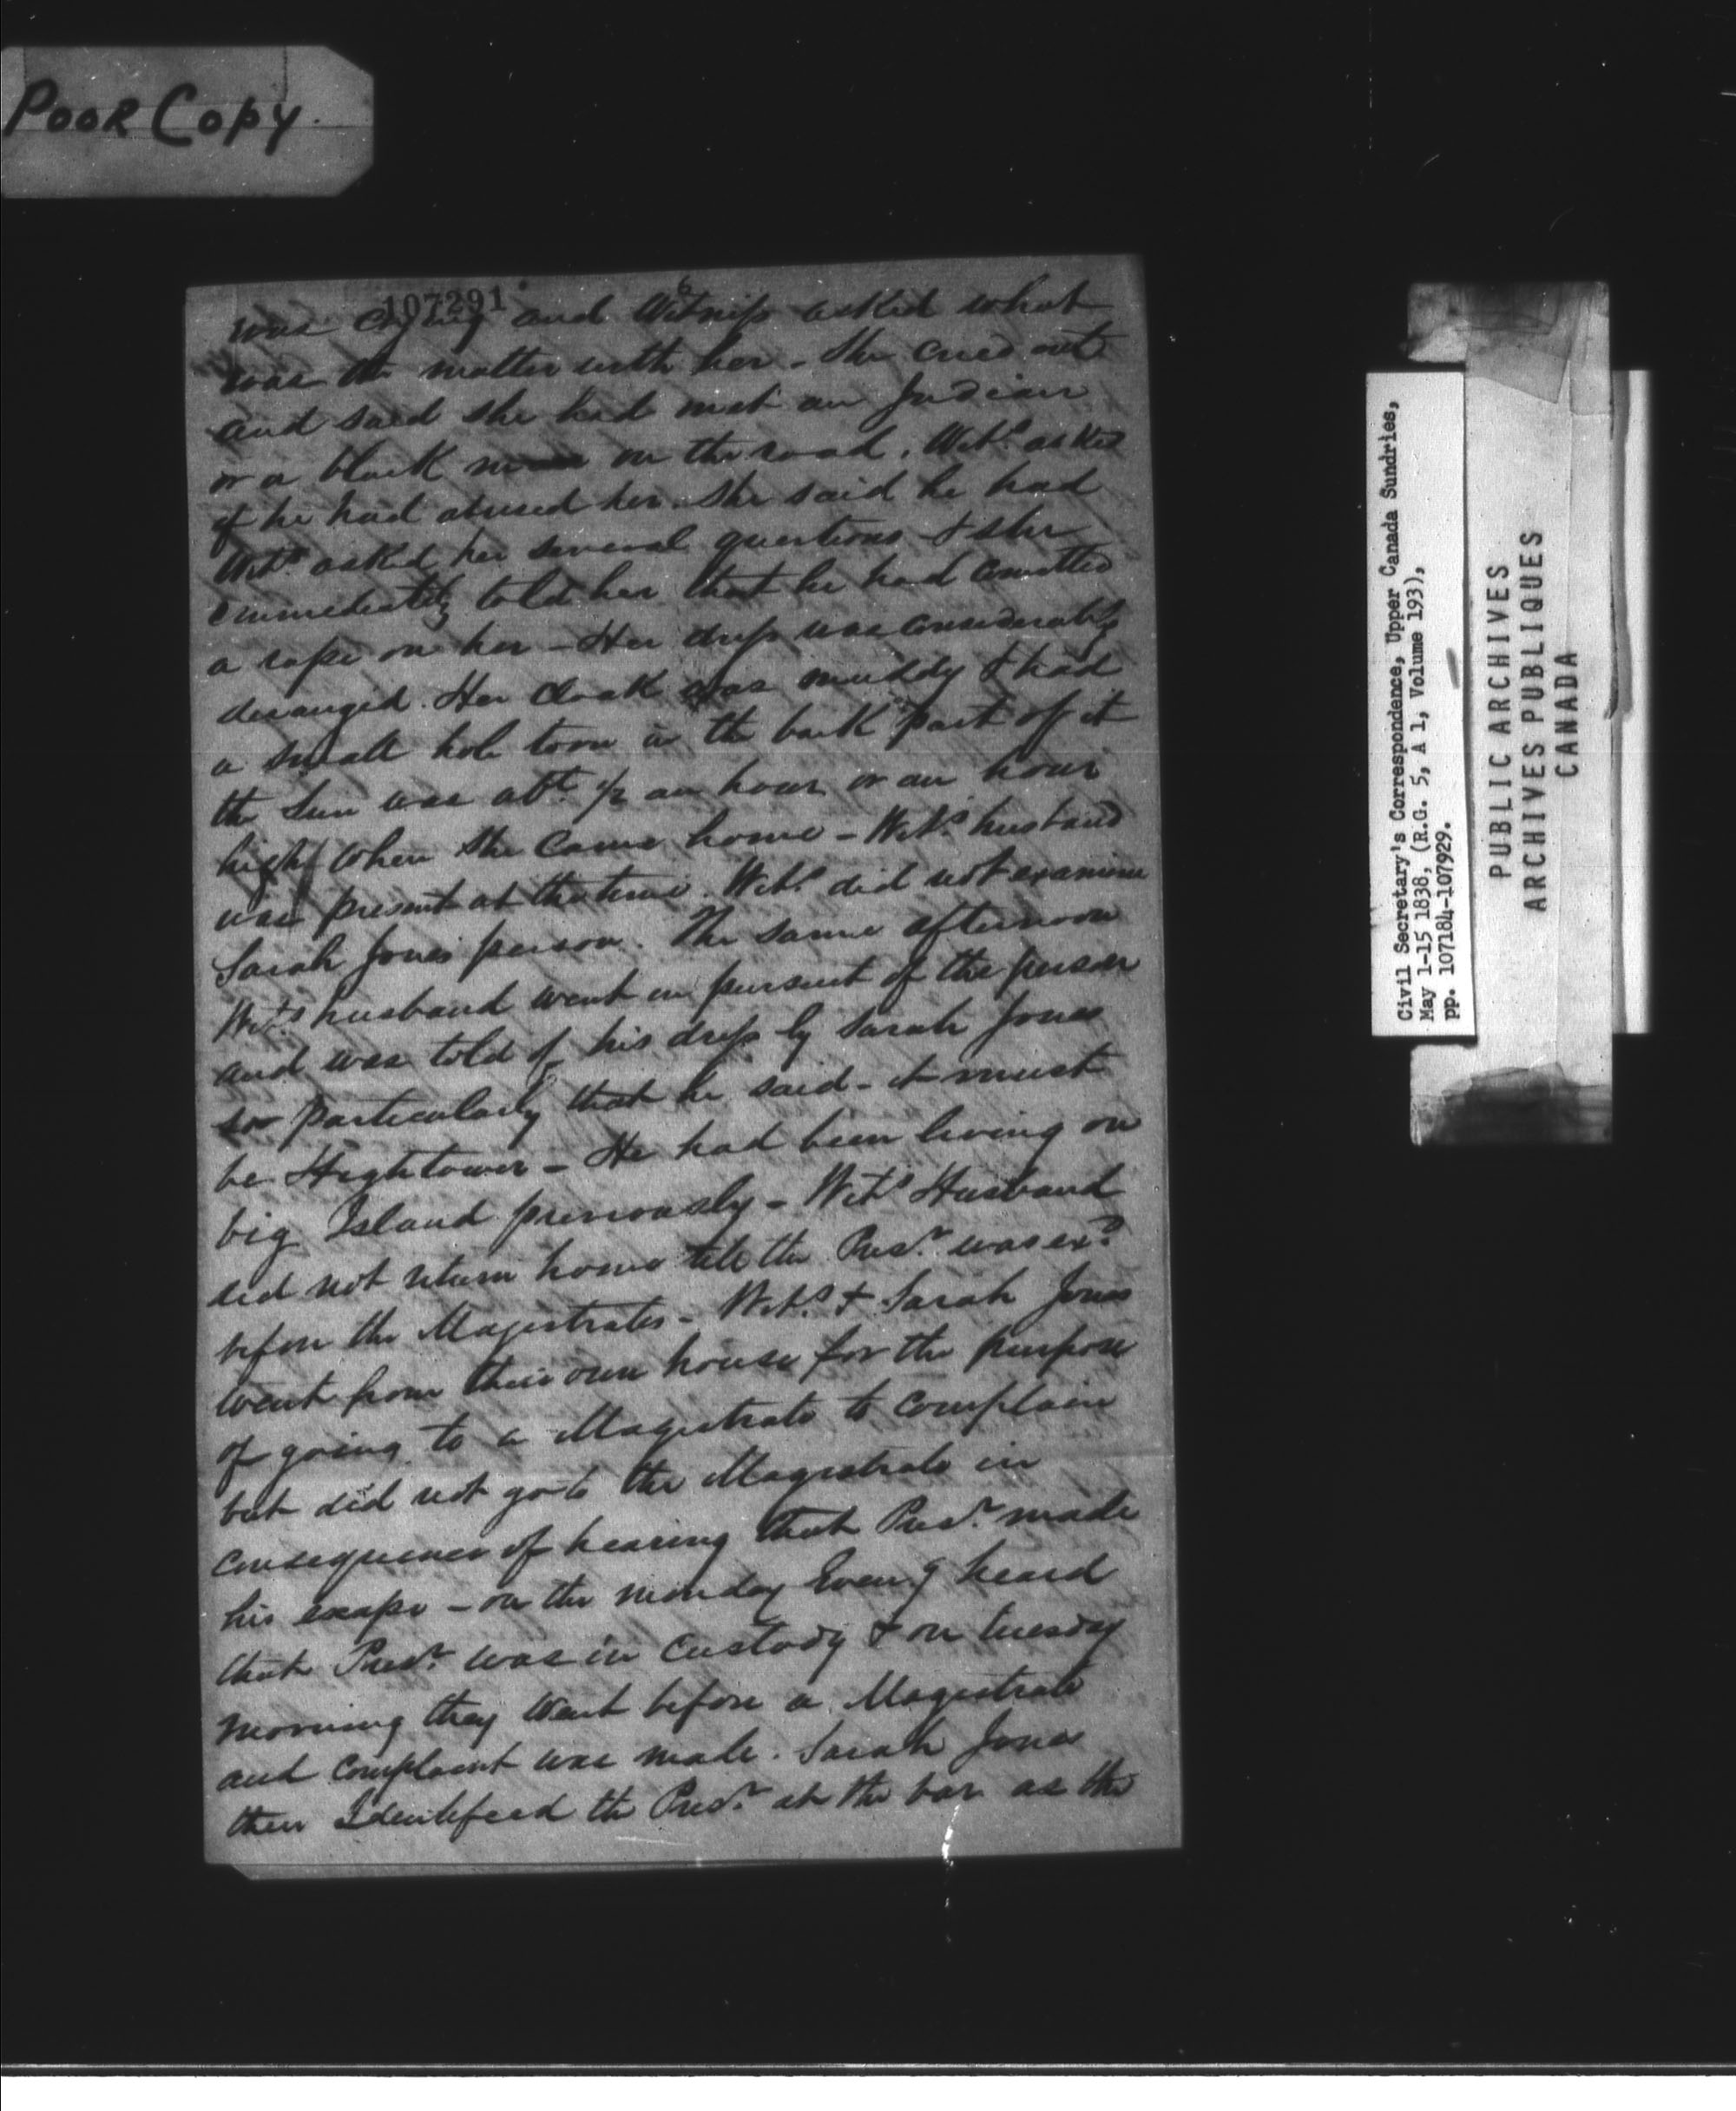 POOR COPY.
107291
6
was crying and Witness asked what
was the matter with her - She cried out
and said she had met an Indian
or a black man on the road. Wits. asked
if he had abused her. She said he had
Wits. asked her several questions & she
immediately told her that he had comitted
a rape on her - Her dress was considerably
deranged. Her cloak was muddy & had
a small hole torn in the back part of it
the Sun was abt. 1/2 an hour or an hour
high when she came home - Wits. husband
was present at the time. Wits. did not examine
Sarah Jones person. The same afternoon
Wits. husband went in pursuit of the person
and was told of his dress by Sarah Jones
so particularly that he said - it must
be Hightower - He had been living on
big Island previously - Wits. Husband
did not return home till the Prisr. was exd.
before the Magistrates - Wits. & Sarah Jones
went from their own house for the purpose
of going to a Magistrate to complain
but did not go to the Magistrate in
consequence of hearing that Prisr. made
his escape - on the monday Eveng heard
that Prisr. was in Custody & on tuesday
morning they went before a Magistrate
and complaint was made. Sarah Jones
then Identifeed the Prisr. at the bar as the
Civil Secretary's Correspondence, Upper Canada Sundries,
May 1-15 1838, (R.G. 5, A 1, Volume 193),
pp. 107184-107929.
PUBLIC ARCHIVES
ARCHIVES PUBLIQUES
CANADA